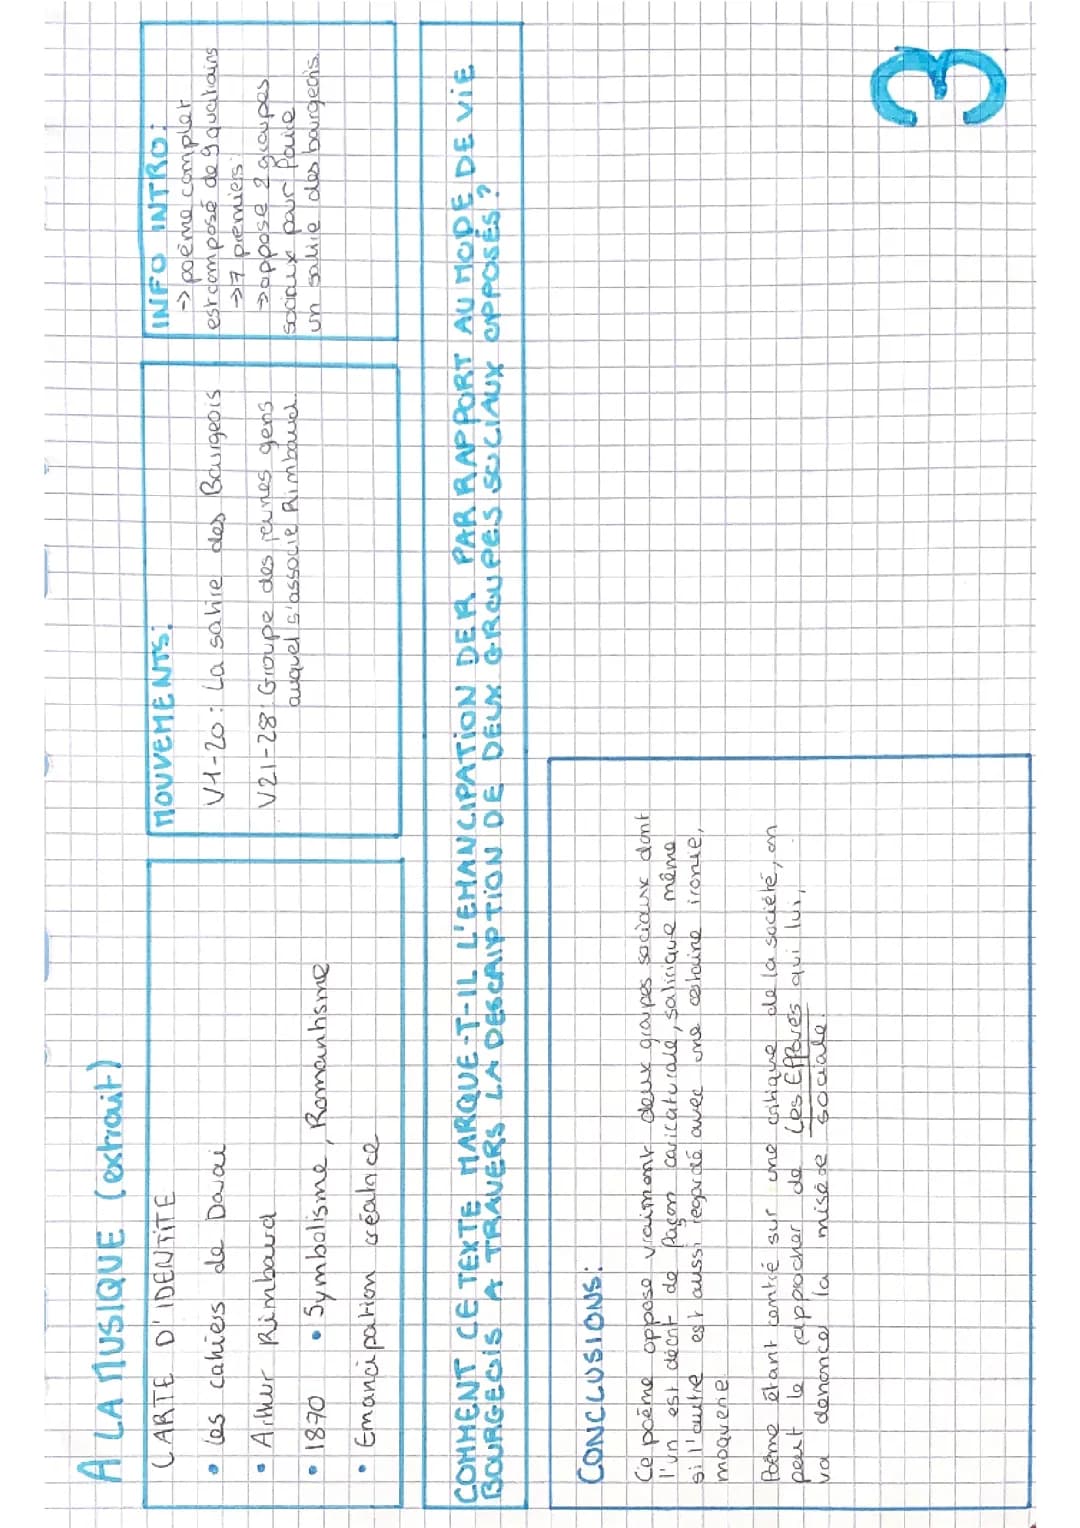 A LA MUSIQUE (extrait)
CARTE D'IDENTITE
• Les cahiers de Douai
• Arthur Rimbaud
• 1870 • Symbolisme, Romantisme
• Emancipation créatrice
MOUVEMENTS:
V1-20: La satire des Bourgeois
V21-28: Groupe des jeunes gens
auquel s'associe Rimbaud.
INFO INTRO:
-> poème complet
est composé de 9 quatrains
-> 7 premiers:
-> oppose 2 groupes
sociaux pour faire
un satire des bourgeois.
COMMENT CE TEXTE MARQUE-T-IL L'EMANCIPATION DE R PAR RAPPORT AU MODE DE VIE
BOURGEOIS A TRAVERS LA DESCRIPTION DE DEUX GROUPES SOCIAUX OPPOSÉS?
CONCLUSIONS:
Ce poème oppose vraiment deux groupes sociaux dont
l'un est décrit de façon caricaturale, satirique même
si l'autre est aussi regardé avec une certaine ironie,
moquerie
Poème étant centré sur une critique de la société, on
peut le rapprocher de Les Effarés qui lui,
va dénoncer la misère sociale.
3